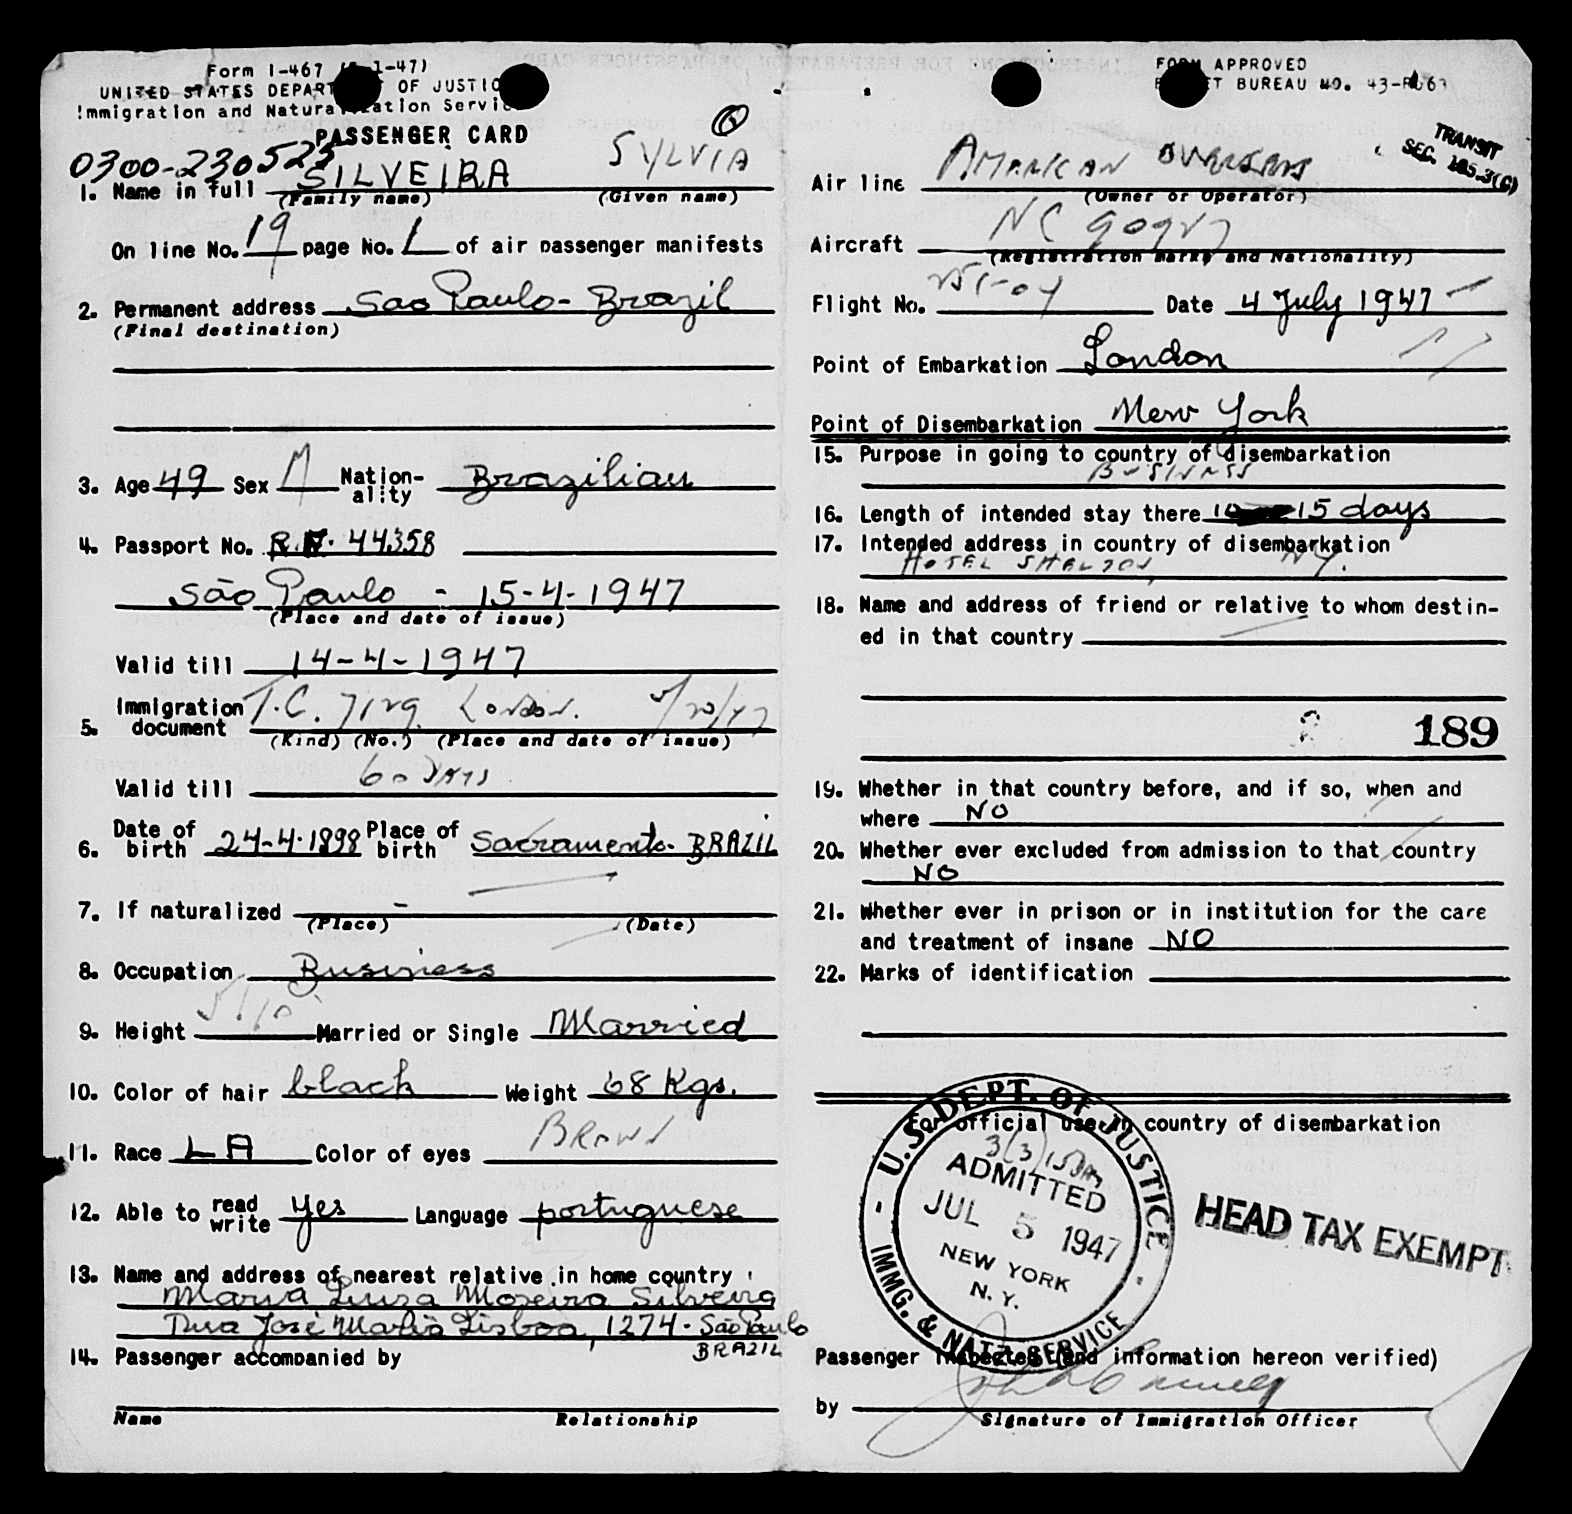 Form I-467 1-47)
UNITED STATES DEPARTMENT OF JUSTICE
Immigration and Naturalization Service
PASSENGER CARD
0300-230525
1. Name in full SILVEIRA SYLVIA
(Family name) (Given name)
On line No. 19 page No. 1 of air passenger manifests
2. Permanent address Sao Paulo - Brazil
(Final destination)
3. Age 49 Sex M Nation-ality Brazilian
4. Passport No. 44358
São Paulo - 15-4-1947
(Place and date of issue)
Valid till 14-4-1947
5. Immigration document T.C. London.
(Kind) (No.) (Place and date of issue)
Valid till 60 DAYS
6. Date of birth 24-4-1898 Place of birth Sacramento - BRAZIL
7. If naturalized -
(Place) (Date)
8. Occupation Business
9. Height Married or Single Married
10. Color of hair black Weight 68 Kgs.
11. Race LA Color of eyes BROWN
12. Able to read write yes Language portuguese
13. Name and address of nearest relative in home country
Maria Luiza Moreira Silveira
Rua José Maria Lisboa, 1274 - São Paulo
BRAZIL
14. Passenger accompanied by
Name Relationship
FORM APPROVED
BUDGET BUREAU NO. 43-R063
TRANSIT
SEC. 105.3(C)
Air line AMERICAN OVERSEAS
(Owner or Operator)
Aircraft NC
(Registration marks and Nationality)
Flight No. Date 4 July 1947
Point of Embarkation London
Point of Disembarkation New York
15. Purpose in going to country of disembarkation
BUSINESS
16. Length of intended stay there 15 days
17. Intended address in country of disembarkation
HOTEL SHELTON, NY.
18. Name and address of friend or relative to whom destin-
ed in that country
189
19. Whether in that country before, and if so, when and
where NO
20. Whether ever excluded from admission to that country
NO
21. Whether ever in prison or in institution for the care
and treatment of insane NO
22. Marks of identification
For official use in country of disembarkation
U.S. DEPT. OF JUSTICE
3(3) 15 DAYS
ADMITTED
JUL 5 1947
NEW YORK
N. Y.
IMMG. & NATZ. SERVICE
HEAD TAX EXEMPT
Passenger inspected (and information hereon verified)
by
Signature of Immigration Officer